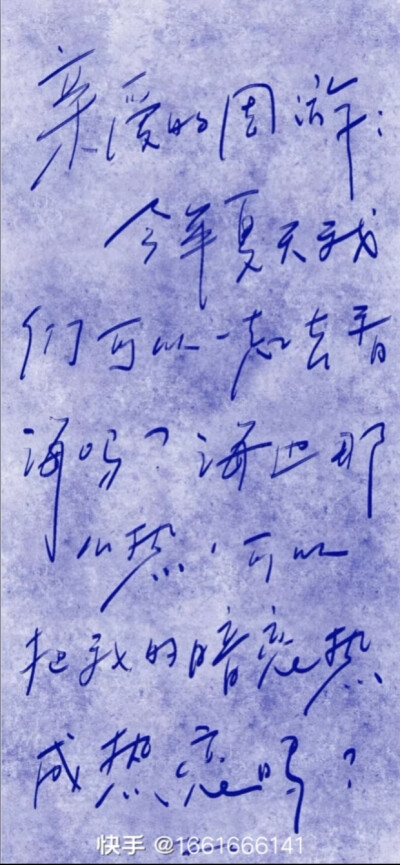 亲爱的周游:
今年夏天我
们可以一起去看
海吗？海边那
么热，可以
把我的暗恋热
成热恋吗？
快手 @1661666141